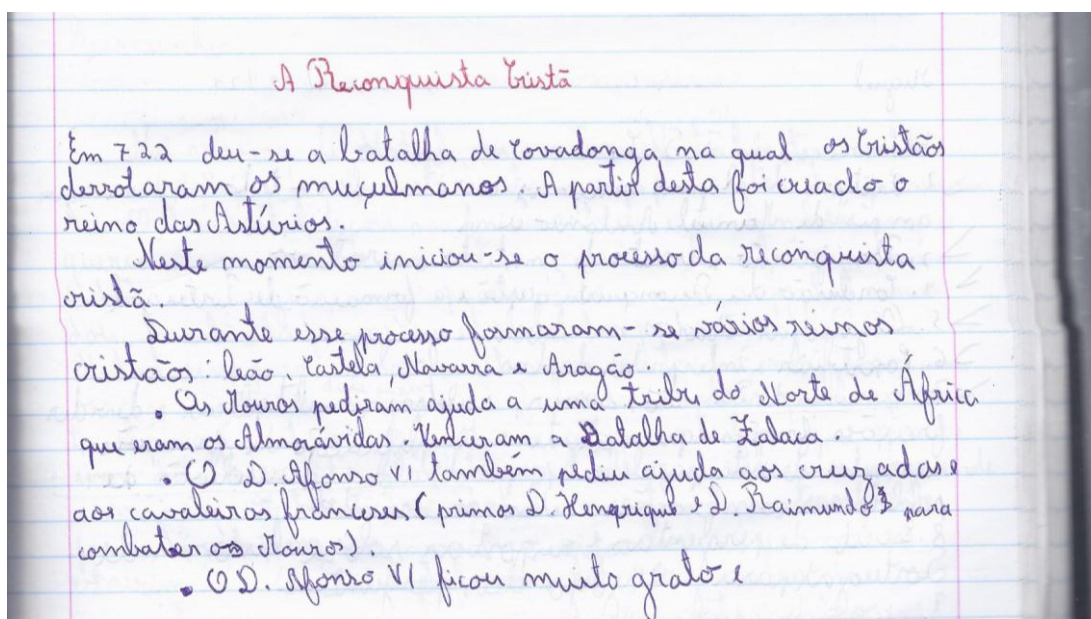 A Reconquista Cristã
Em 722 deu-se a batalha de Covadonga na qual os Cristãos
derrotaram os muçulmanos. A partir desta foi criado o
reino das Astúrios.
Neste momento iniciou-se o processo da reconquista
cristã.
Durante esse processo formaram-se vários reinos
cristãos leão. Castela, Navarra e Aragão.
• Os Mouros pediram ajuda a uma tribu do Norte de África
que eram os Almorávidas. Venceram a Batalha de Zalaca.
• O D. Afonso VI também pediu ajuda aos cruzadas e
aos cavaleiros franceses (primos D. Henrique e D. Raimundo para
combater os Mouros).
• O D. Afonso VI ficou muito grato e